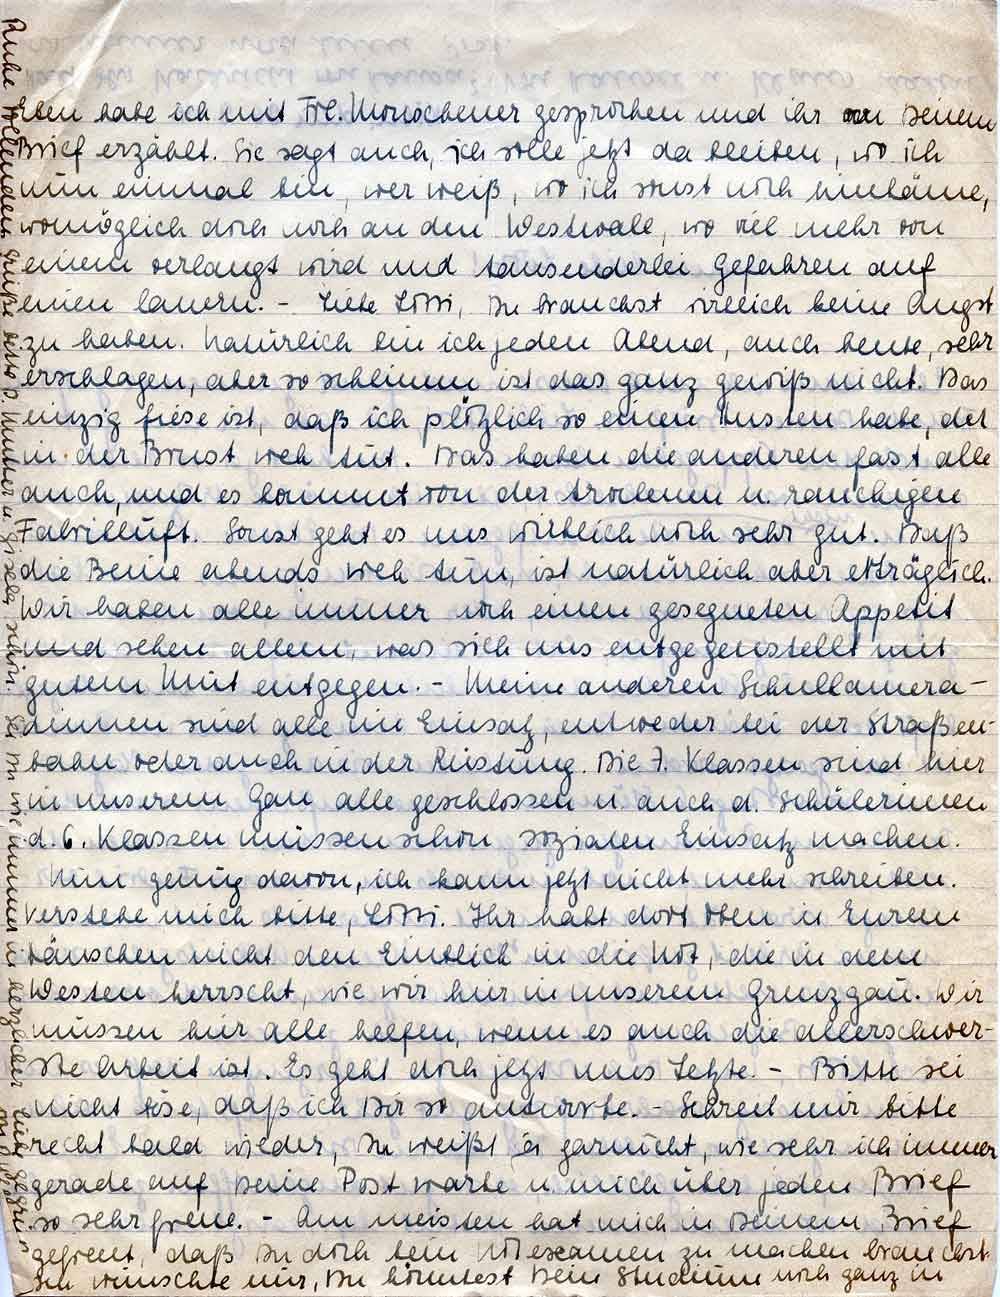 Eben habe ich mit Frl. Monschener gesprochen und ihr von Deinem
Brief erzählt. Sie sagt auch, ich solle jetzt da bleiben, wo ich
nun einmal bin, wer weiß, wo ich sonst noch hinkäme,
womöglich doch noch an den Westwall, wo viel mehr von
einem verlangt wird und tausenderlei Gefahren auf
einen lauern. - Liebe Lotti, Du brauchst wirklich keine Angst
zu haben. Natürlich bin ich jeden Abend, auch heute, sehr
erschlagen, aber so schlimm ist das ganz gewiß nicht. Das
einzig fiese ist, daß ich plötzlich so einen Husten habe, der
in der Brust weh tut. Das haben die anderen fast alle
auch, und es kommt von der trockenen u. rauchigen
Fabrikluft. Sonst geht es uns wirklich noch sehr gut. Daß
die Beine abends weh tun, ist natürlich aber erträglich.
Wir haben alle immer noch einen gesegneten Appetit
und sehen allem, was sich uns entgegenstellt mit
gutem Mut entgegen. - Meine anderen Schulkamera-
dinnen sind alle im Einsatz, entweder bei der Straßen-
bahn oder auch in der Rüstung. Die 7. Klassen sind hier
in unserem Gau alle geschlossen u. auch d. Schülerinnen
d. 6. Klassen müssen schon sozialen Einsatz machen.
Nun genug davon, ich kann jetzt nicht mehr schreiben.
Verstehe mich bitte, Lotti. Ihr habt dort oben in Eurem
Häuschen nicht den Einblick in die Not, die in dem
Westen herrscht, wie wir hier in unserem Grenzgau. Wir
müssen hier alle helfen, wenn es auch die allerschwer-
ste Arbeit ist. Es geht doch jetzt ums Letzte. - Bitte sei
nicht böse, daß ich Dir so antworte. - Schreib mir bitte
recht bald wieder, Du weißt ja garnicht, wie sehr ich immer
gerade auf Deine Post warte u. mich über jeden Brief
so sehr freue. - Am meisten hat mich in Deinem Brief
gefreut, daß Du doch kein Notexamen zu machen brauchst.
Ich wünschte nur, Du könntest Dein Studium noch ganz in
Ruhe vollenden. Grüße bitte D. Mutter u. Gisela schön. Sei Du wie immer in herzlicher Liebe gegrüßt